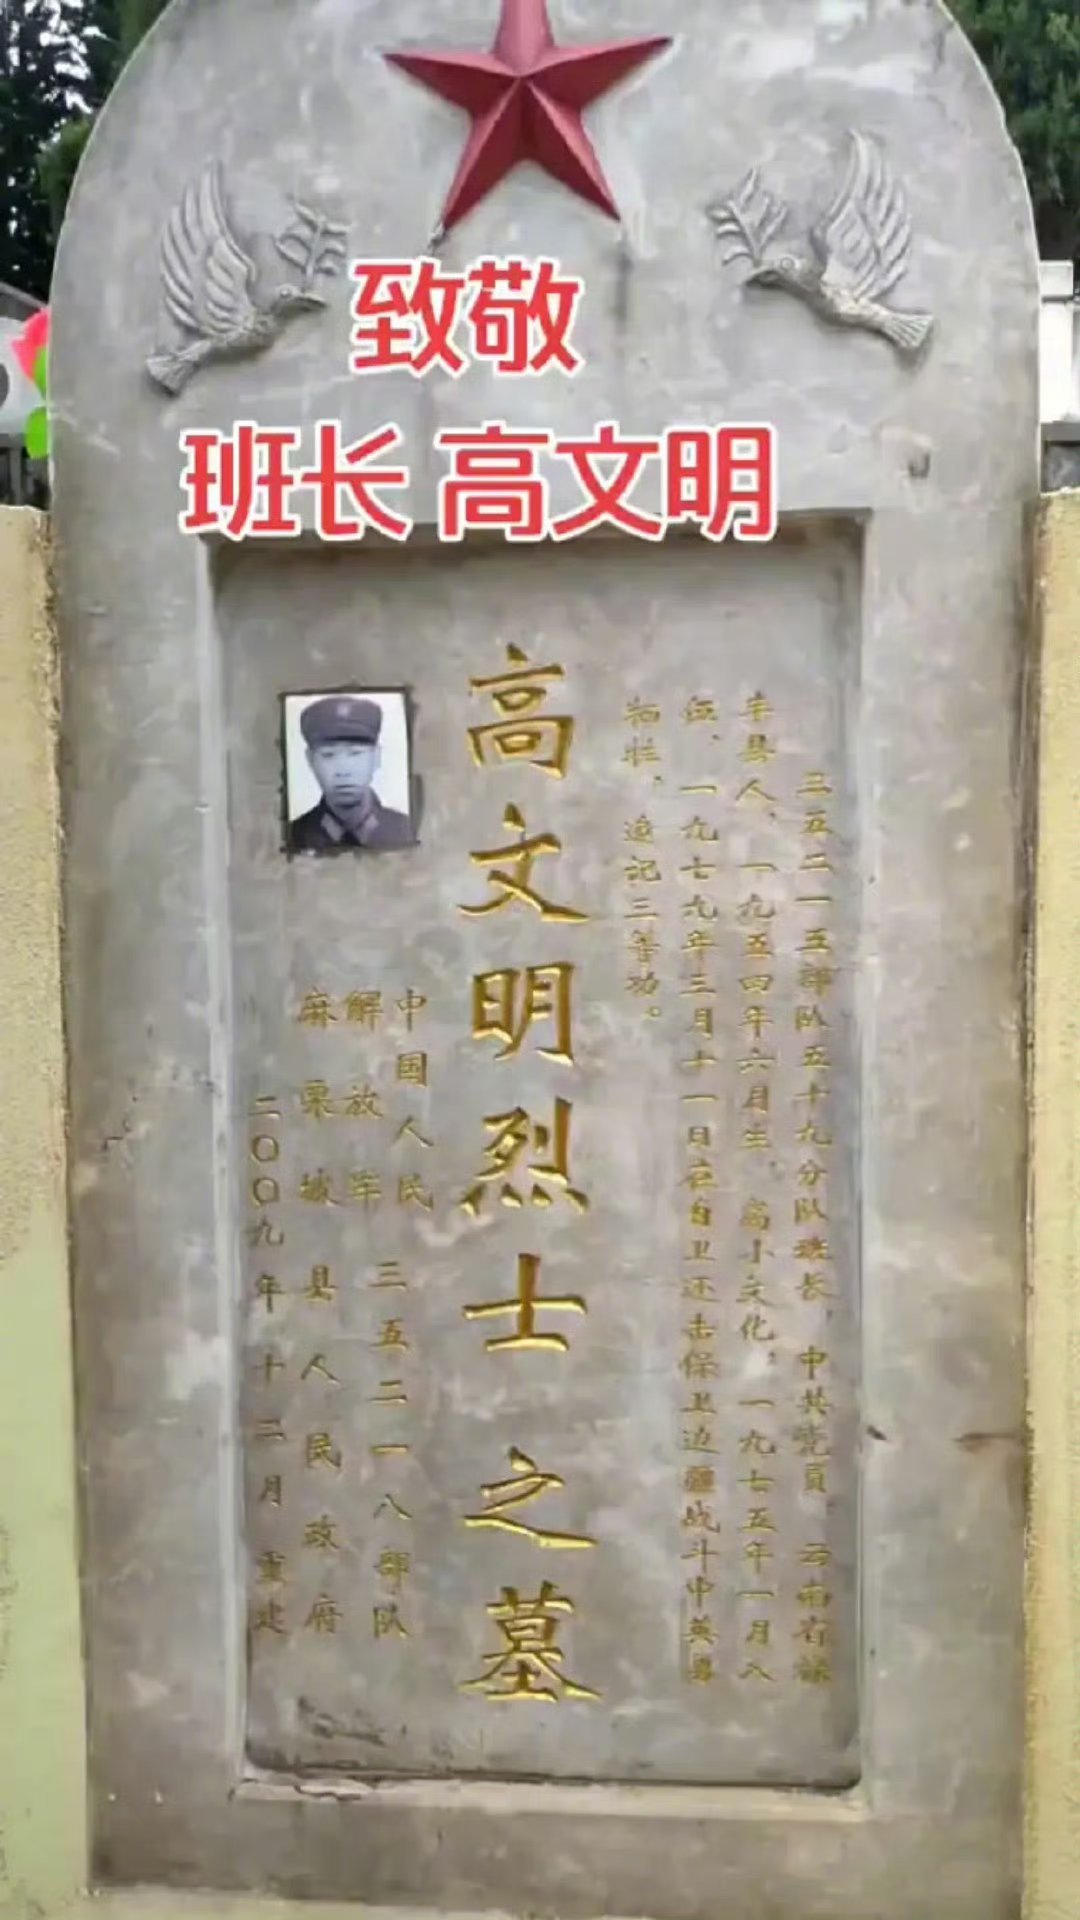 致敬
班长 高文明
三五二一五部队五十九分队班长，中共党员，云南省禄
丰县人，一九五四年六月生，高小文化，一九七五年一月入
伍，一九七九年三月十一日在自卫还击保卫边疆战斗中英勇
牺牲，追记三等功。
高文明烈士之墓
中国人民
解放军 三五二一八部队
麻栗坡县人民政府
二〇〇九年十二月重建